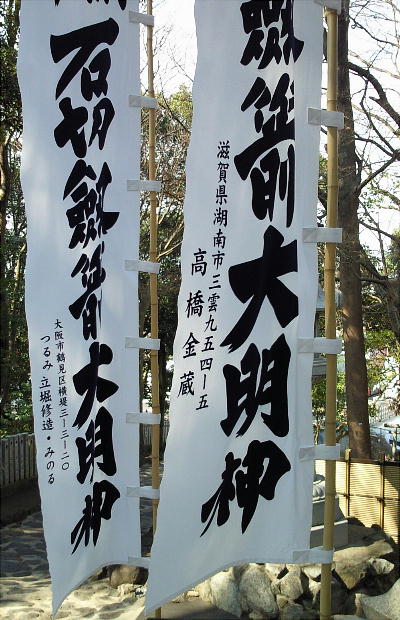 劔箭大明神
滋賀県湖南市三雲九五四ー五
高橋金蔵
石切劔箭大明神
大阪市鶴見区横堤三ー三ー二〇
つるみ 立堀修造・みのる